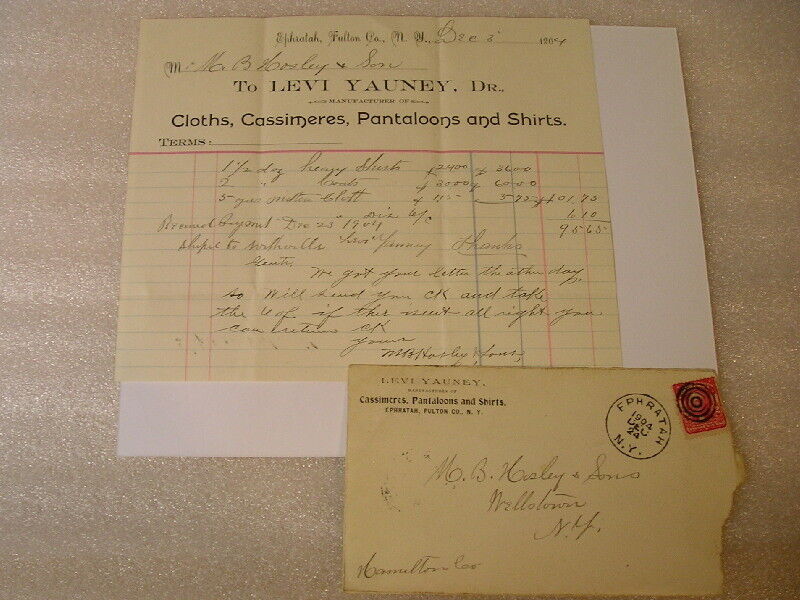 Ephratah, Fulton Co., N. Y., Dec 3 1904
M M. B Hosley & Son
To LEVI YAUNEY, DR.,
MANUFACTURER OF
Cloths, Cassimeres, Pantaloons and Shirts.
TERMS:
1 1/2 doz heavy Shirts 2400 3600
2 " Coats 3000 6000
5 575 101.75
Dis 6% 6 10
Received Payment Dec 23 1904 95 65
Levi Yauney Thanks
Gents,
We got your letter the other day
so will send you ck and take
the 6% off if this isnt all right you
can return ck
yours
M B Hosley & Sons,
LEVI YAUNEY,
MANUFACTURER OF
Cassimeres, Pantaloons and Shirts,
EPHRATAH, FULTON CO., N. Y.
EPHRATAH
1904
DEC
24
N.Y.
M. B. Hosley & Sons
Wellstown
N.Y.
Hamilton Co